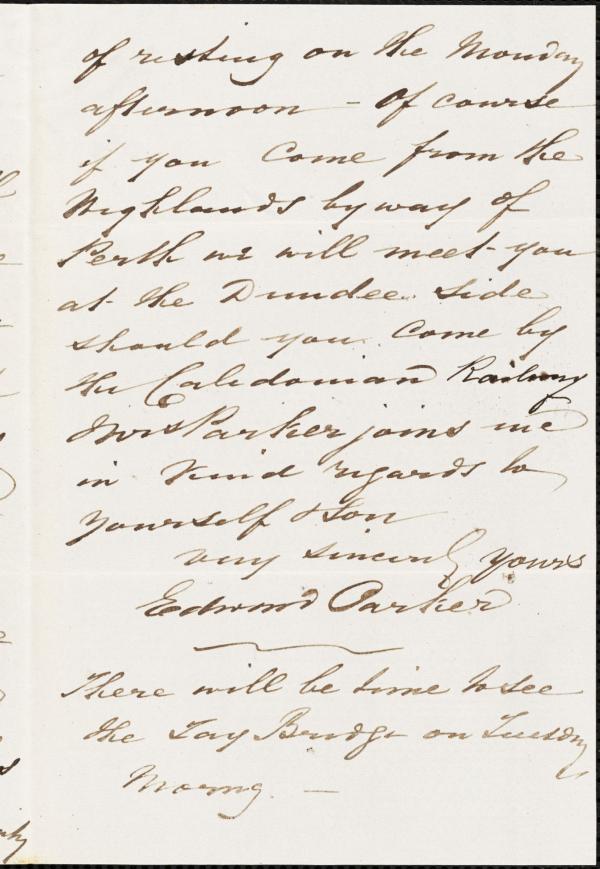 of resting on the Monday
afternoon - Of course
if you Come from the
Highlands by way of
Perth we will meet you
at the Dundee side
should you Come by
the Caledonian Railway
Mrs Parker joins me
in kind regards to
yourself & Son
very sincerely yours
Edward Parker
There will be time to see
the Tay Bridge on Tuesday
Morng. -